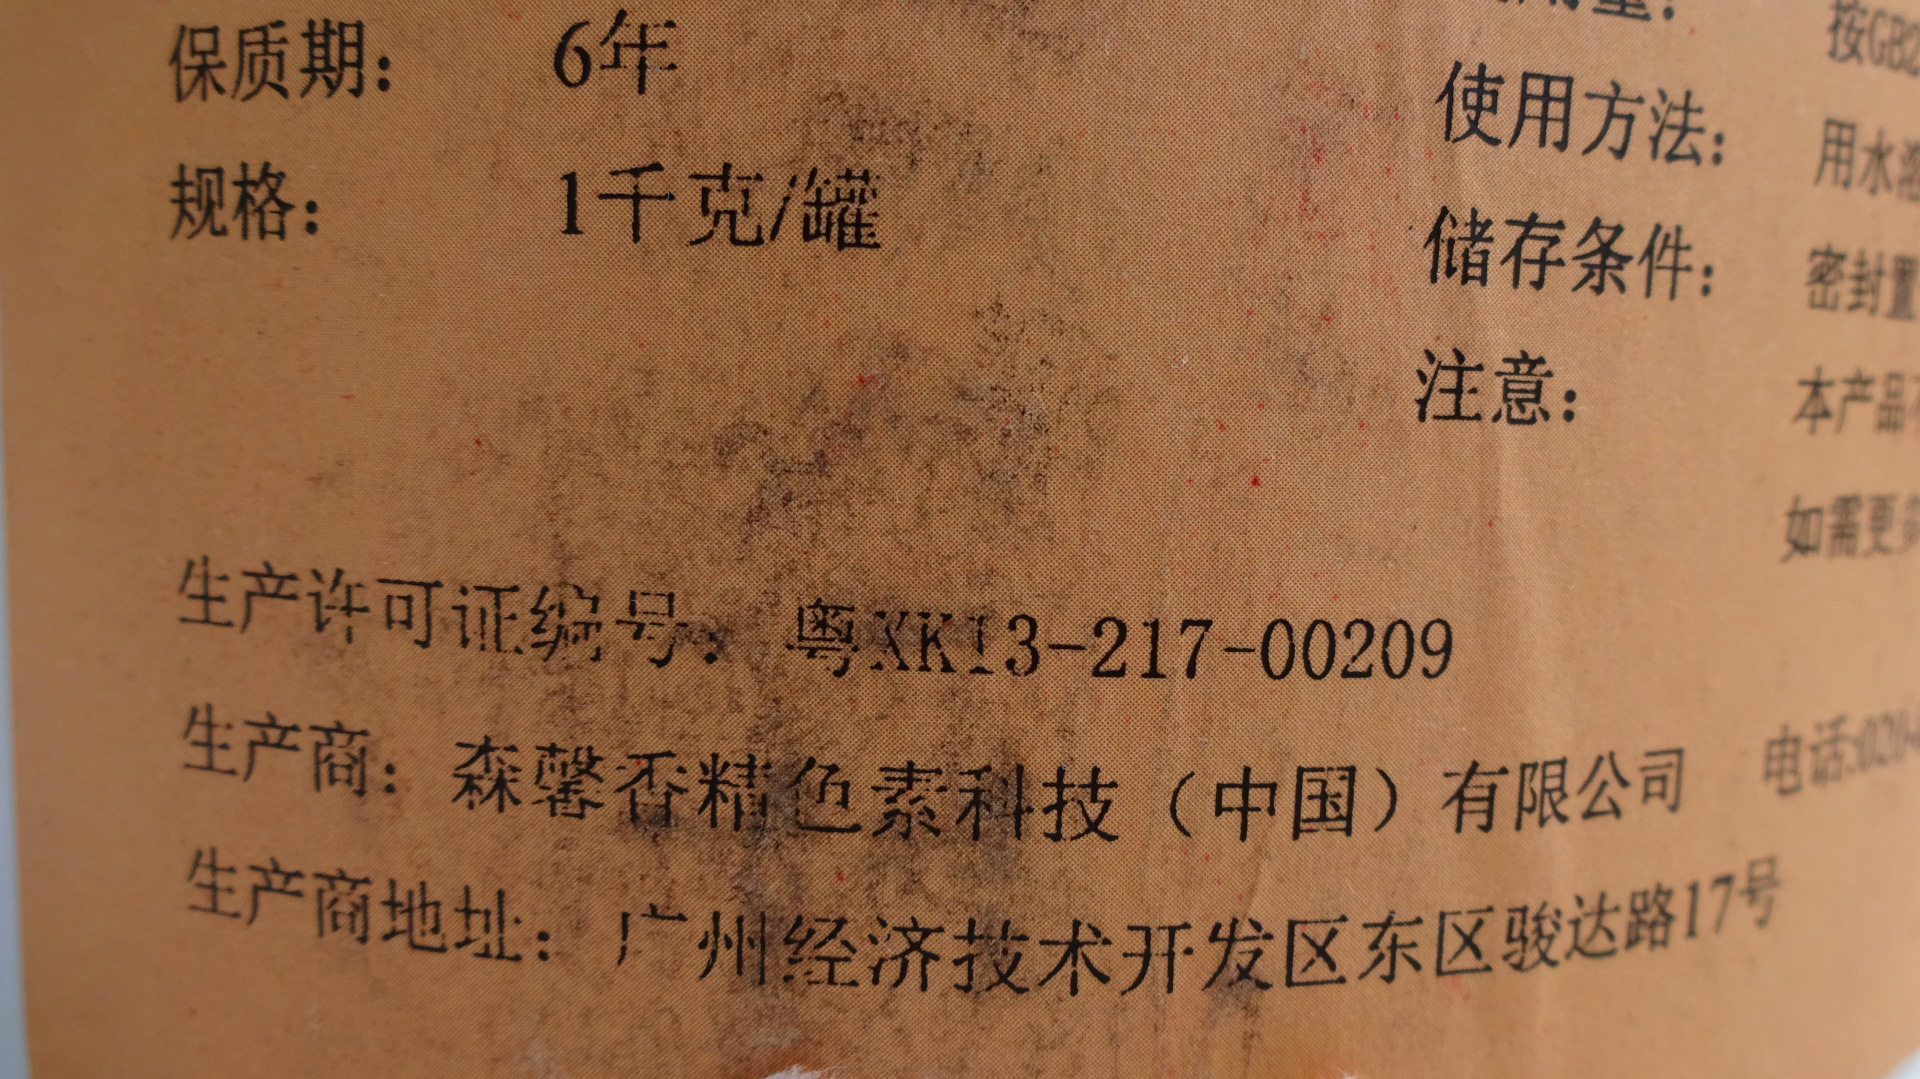 保质期： 6年
规格： 1千克/罐
使用方法： 用水溶
储存条件： 密封置
注意： 本产品
如需更多
按GB2
生产许可证编号： 粤XK13-217-00209
生产商：森馨香精色素科技（中国）有限公司 电话:020-
生产商地址：广州经济技术开发区东区骏达路17号